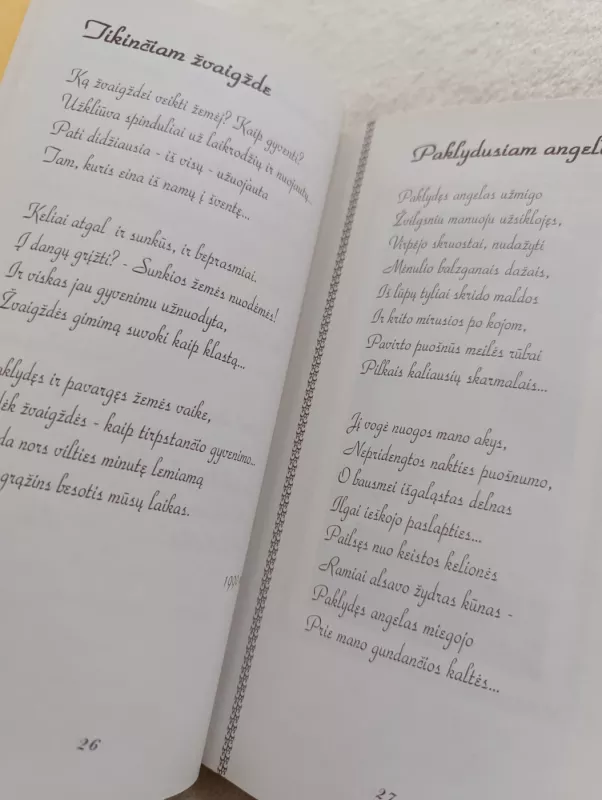 Tikinčiam žvaigžde
Ką žvaigždei veikti žemėj? Kaip gyventi?
Užkliūva spinduliai už laikrodžių ir nuojautų...
Pati didžiausia - iš visų - užuojauta
Tam, kuris eina iš namų į šventę...
Keliai atgal ir sunkūs, ir beprasmiai.
Į dangų grįžti? - Sunkios žemės nuodėmės!
Ir viskas jau gyvenimu užnuodyta,
Žvaigždės gimimą suvoki kaip klastą...
klydęs ir pavargęs žemės vaike,
ėk žvaigždės - kaip tirpstančio gyvenimo...
da nors vilties minutę lemiamą
grąžins besotis mūsų laikas.
26
Paklydusiam angelu
Paklydęs angelas užmigo
Žvilgsniu manuoju užsiklojęs,
Virpėjo skruostai, nudažyti
Mėnulio balzganais dažais,
Iš lūpų tyliai skrido maldos
Ir krito mirusios po kojom,
Pavirto puošnūs meilės rūbai
Pilkais kaliausių skarmalais...
Jį vogė nuogos mano akys,
Nepridengtos nakties puošnumo,
O bausmei išgaląstas delnas
Ilgai ieškojo paslapties...
Pailsęs nuo keistos kelionės
Ramiai alsavo žydras kūnas -
Paklydęs angelas miegojo
Prie mano gundančios kaltės...
27